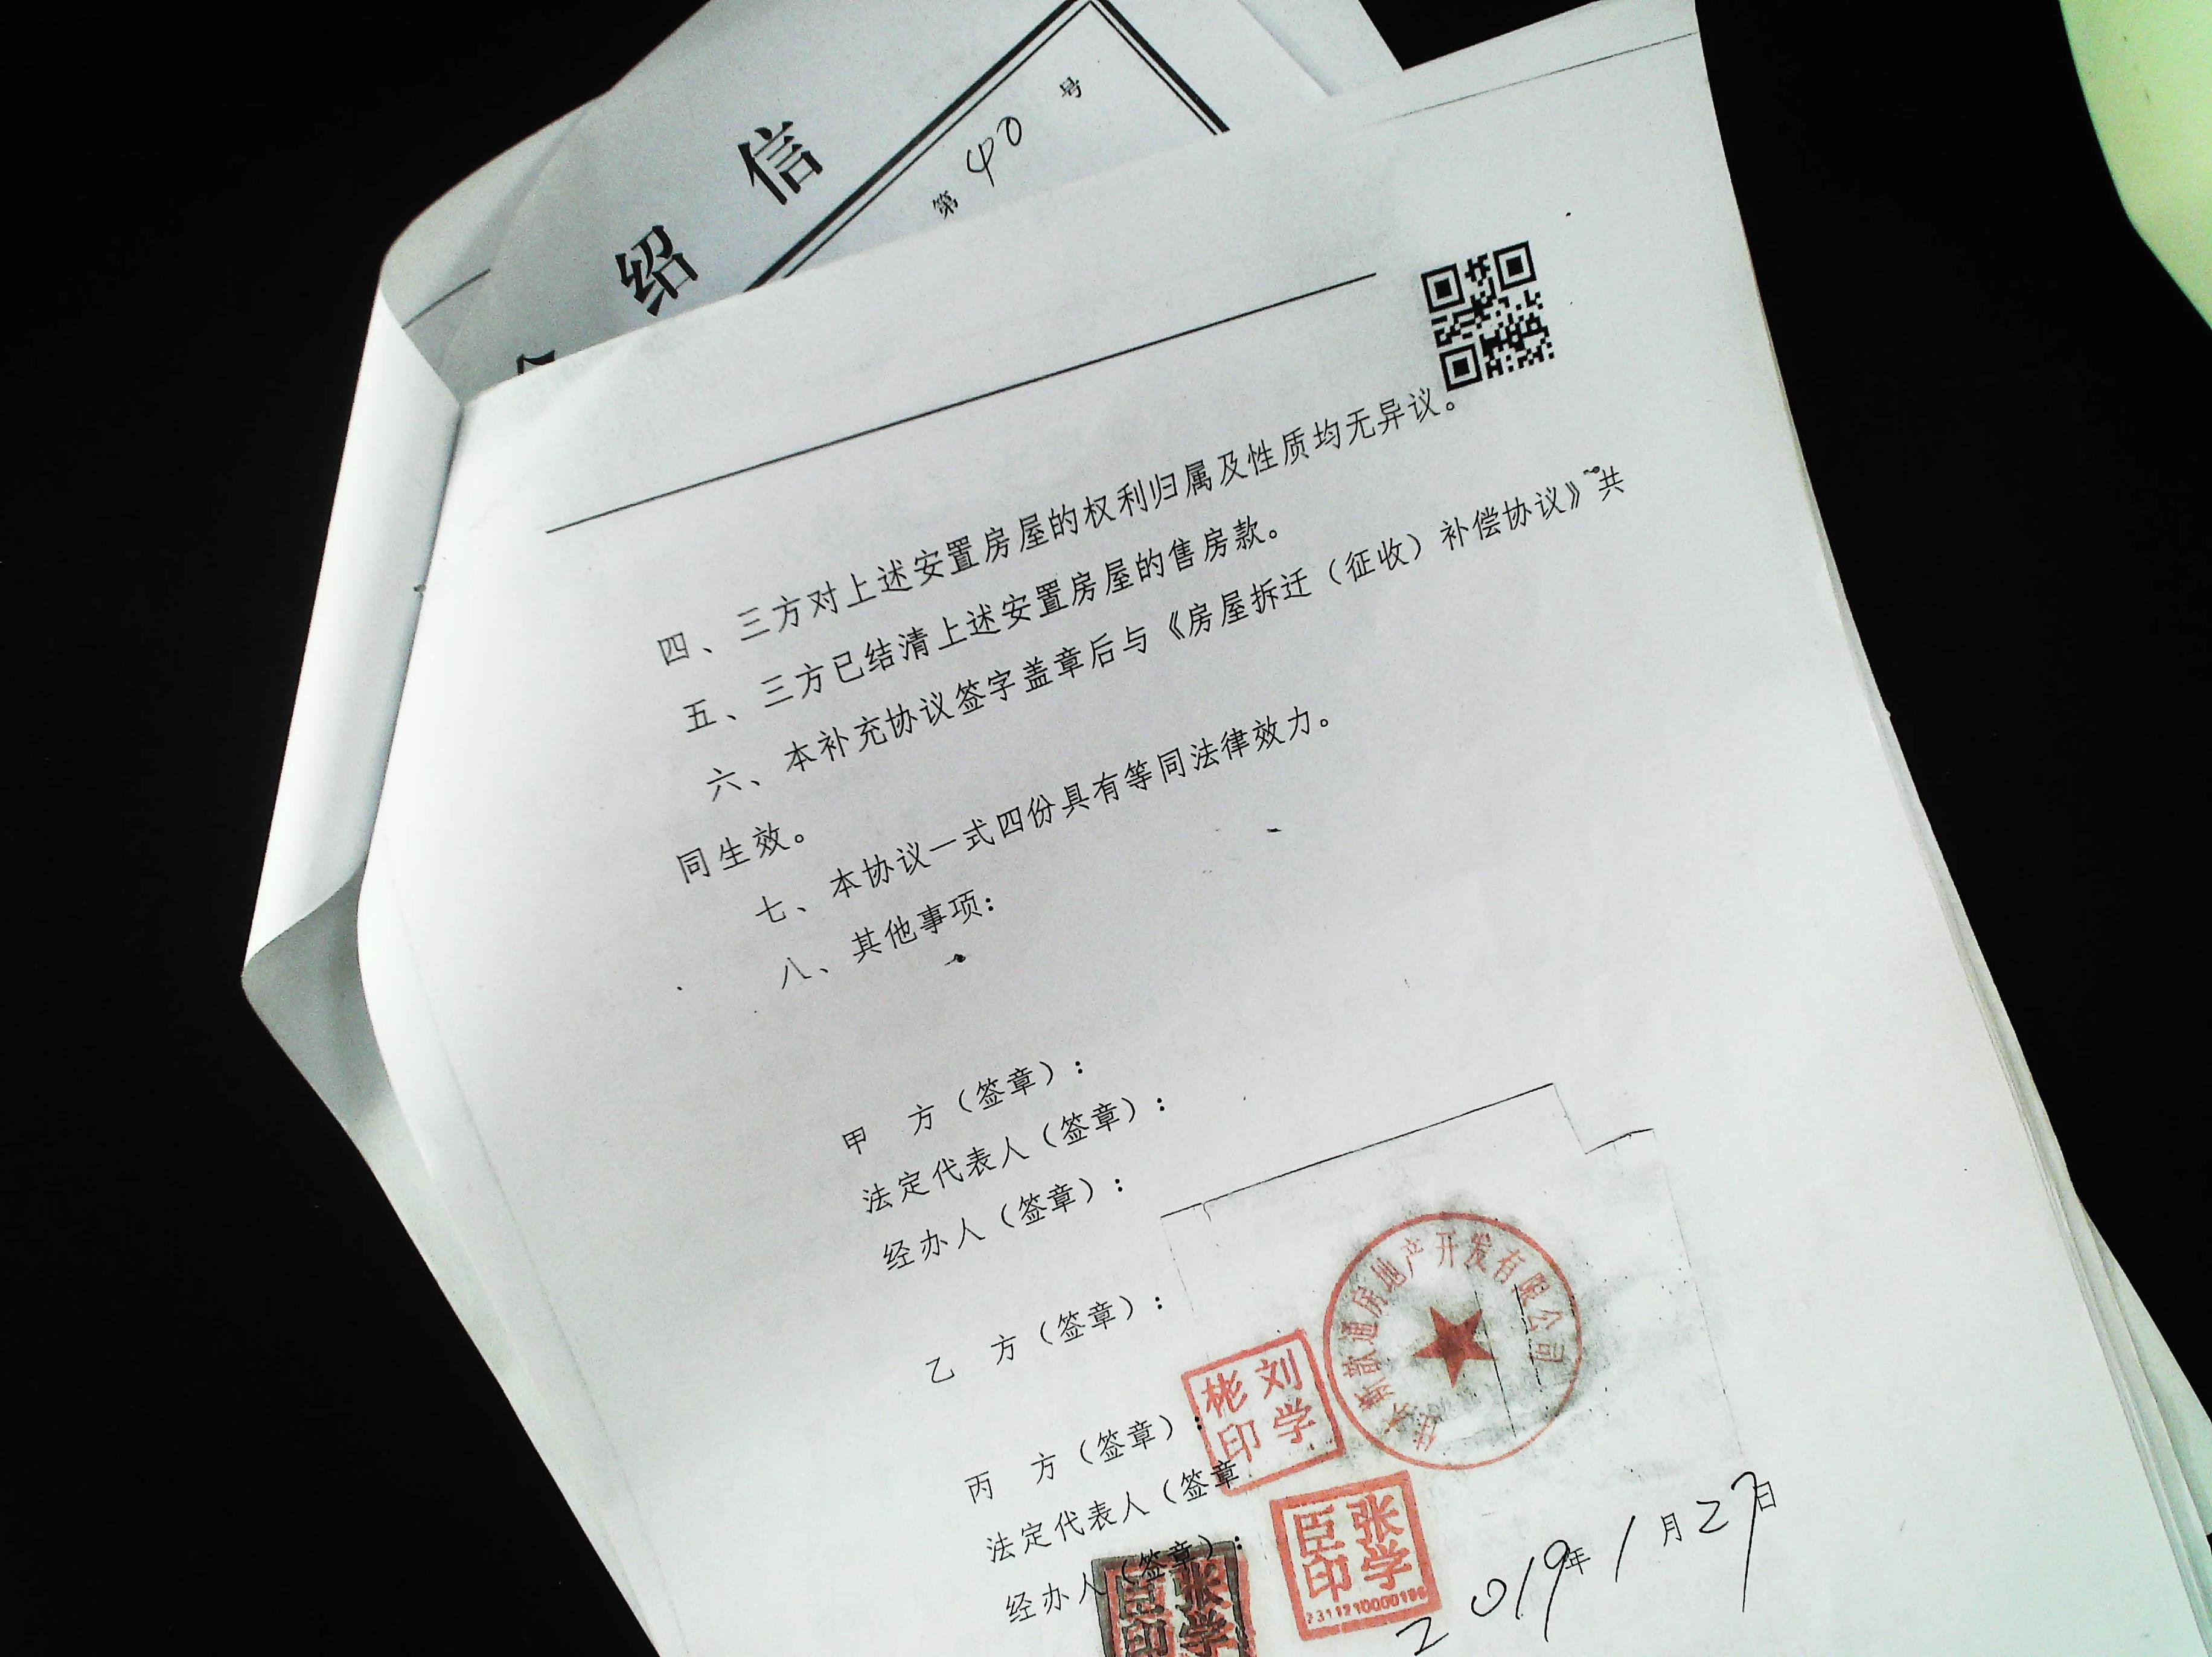 绍 信
第 40 号
四、三方对上述安置房屋的权利归属及性质均无异议。
五、三方已结清上述安置房屋的售房款。
六、本补充协议签字盖章后与《房屋拆迁（征收）补偿协议》共
同生效。
七、本协议一式四份具有等同法律效力。
八、其他事项：
甲 方（签章）：
法定代表人（签章）：
经办人（签章）：
乙 方（签章）：
丙 方（签章）：
法定代表人（签章
经办人（签章）：
通房地产开发有限公司
刘学彬印
张学臣印
张学臣印
2019年1月27日